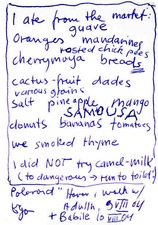 I ate from the market:
guave
Oranges mandarines
rosted chick pees
cherrymoya breads
cactus-fruit dades
various grains
salt pineapple mango
SAMOUSA
donuts bananas tomatoes
we smoked thyme
I did NOT try camel-milk
(to dangerous → run to toilet)
Poloroid
walk w/
Adulla, 9 VIII 04
+ Babile 10 VIII 04